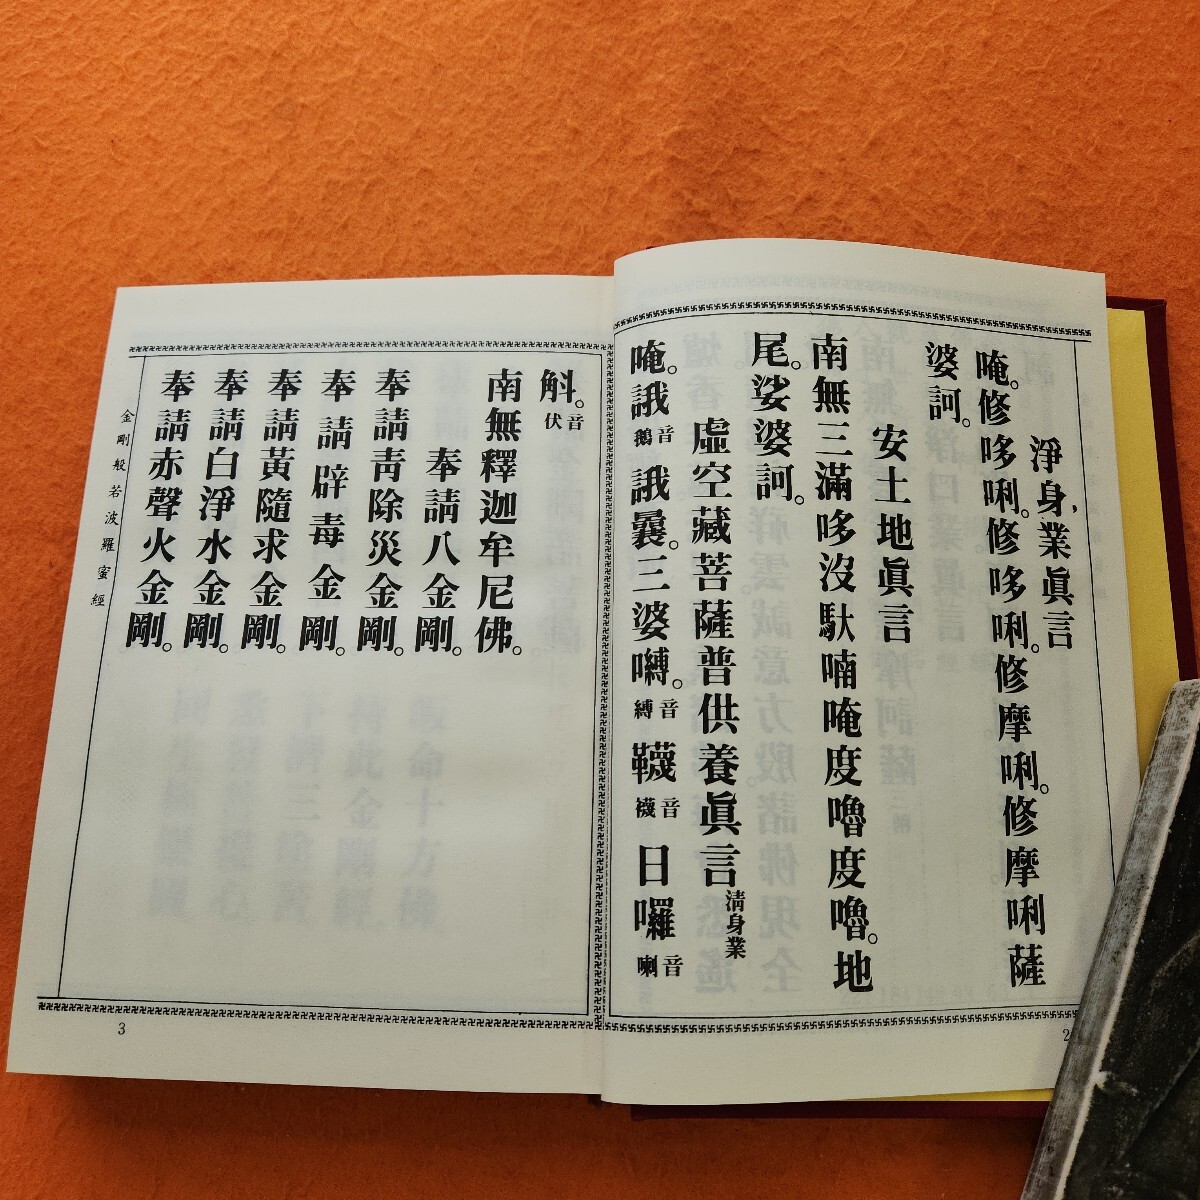 淨身業眞言
唵。修哆唎。修哆唎。修摩唎。修摩唎薩
婆訶。
安土地眞言
南無三滿哆沒馱喃唵度嚕度嚕。地
尾。娑婆訶。
虛空藏菩薩普供養眞言 淸身業
唵。誐音鵝誐曩。三婆嚩。音縛韈音襪日囉音喇
2
斛。音伏
南無釋迦牟尼佛。
奉請八金剛。
奉請靑除災金剛。
奉請辟毒金剛。
奉請黃隨求金剛。
奉請白淨水金剛。
奉請赤聲火金剛。
金剛般若波羅蜜經
3